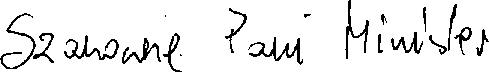 Szanowna Pani Minister